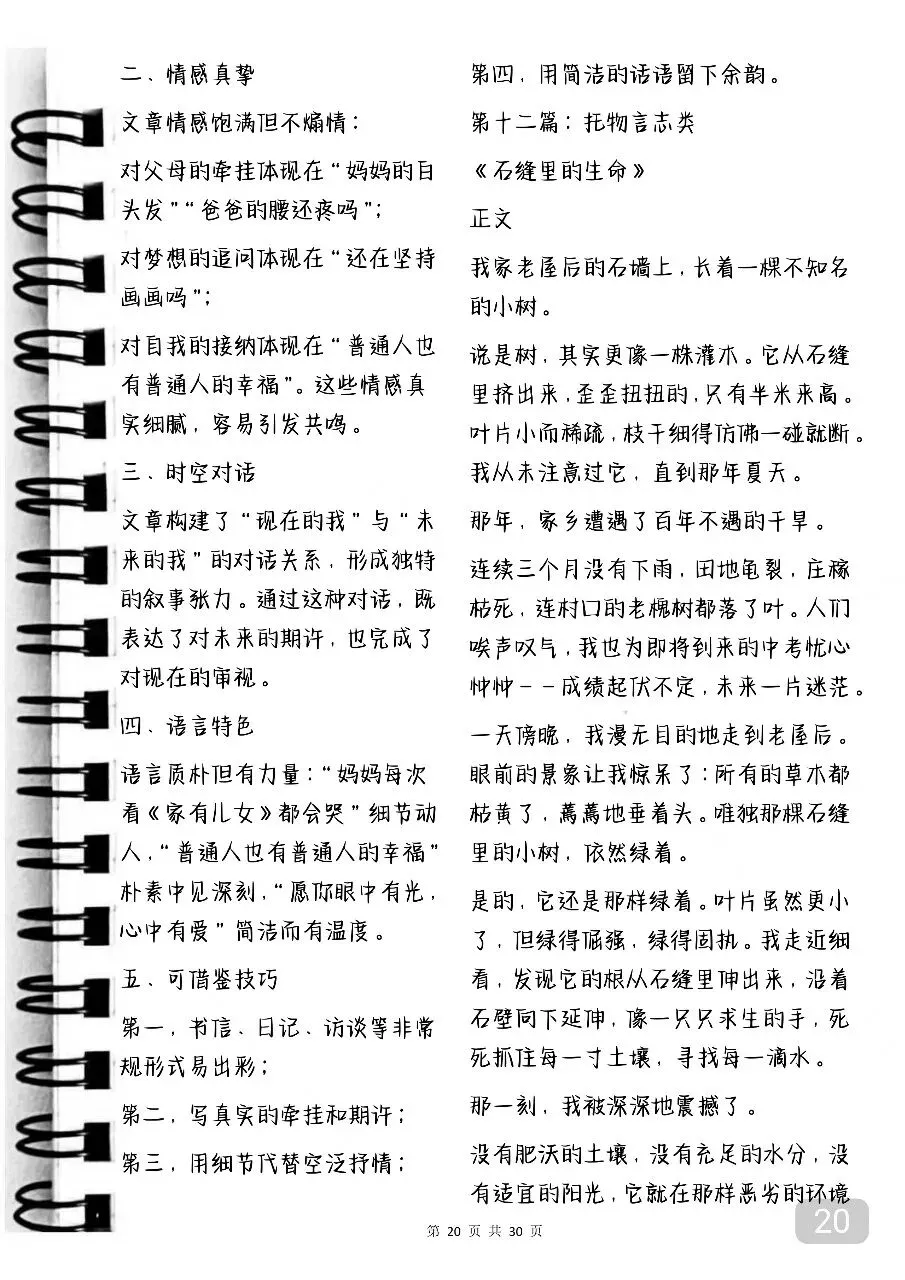 二、情感真挚
文章情感饱满但不煽情：
对父母的牵挂体现在“妈妈的白
头发”“爸爸的腰还疼吗”；
对梦想的追问体现在“还在坚持
画画吗”；
对自我的接纳体现在“普通人也
有普通人的幸福”。这些情感真
实细腻，容易引发共鸣。
三、时空对话
文章构建了“现在的我”与“未
来的我”的对话关系，形成独特
的叙事张力。通过这种对话，既
表达了对未来的期许，也完成了
对现在的审视。
四、语言特色
语言质朴但有力量：“妈妈每次
看《家有儿女》都会哭”细节动
人，“普通人也有普通人的幸福”
朴素中见深刻，“愿你眼中有光，
心中有爱”简洁而有温度。
五、可借鉴技巧
第一，书信、日记、访谈等非常
规形式易出彩；
第二，写真实的牵挂和期许；
第三，用细节代替空泛抒情；
第四，用简洁的话语留下余韵。
第十二篇：托物言志类
《石缝里的生命》
正文
我家老屋后的石墙上，长着一棵不知名
的小树。
说是树，其实更像一株灌木。它从石缝
里挤出来，歪歪扭扭的，只有半米来高。
叶片小而稀疏，枝干细得仿佛一碰就断。
我从未注意过它，直到那年夏天。
那年，家乡遭遇了百年不遇的干旱。
连续三个月没有下雨，田地龟裂，庄稼
枯死，连村口的老槐树都落了叶。人们
唉声叹气，我也为即将到来的中考忧心
忡忡——成绩起伏不定，未来一片迷茫。
一天傍晚，我漫无目的地走到老屋后。
眼前的景象让我惊呆了：所有的草木都
枯黄了，蔫蔫地垂着头。唯独那棵石缝
里的小树，依然绿着。
是的，它还是那样绿着。叶片虽然更小
了，但绿得倔强，绿得固执。我走近细
看，发现它的根从石缝里伸出来，沿着
石壁向下延伸，像一只只求生的手，死
死抓住每一寸土壤，寻找每一滴水。
那一刻，我被深深地震撼了。
没有肥沃的土壤，没有充足的水分，没
有适宜的阳光，它就在那样恶劣的环境
第 20 页 共 30 页
20